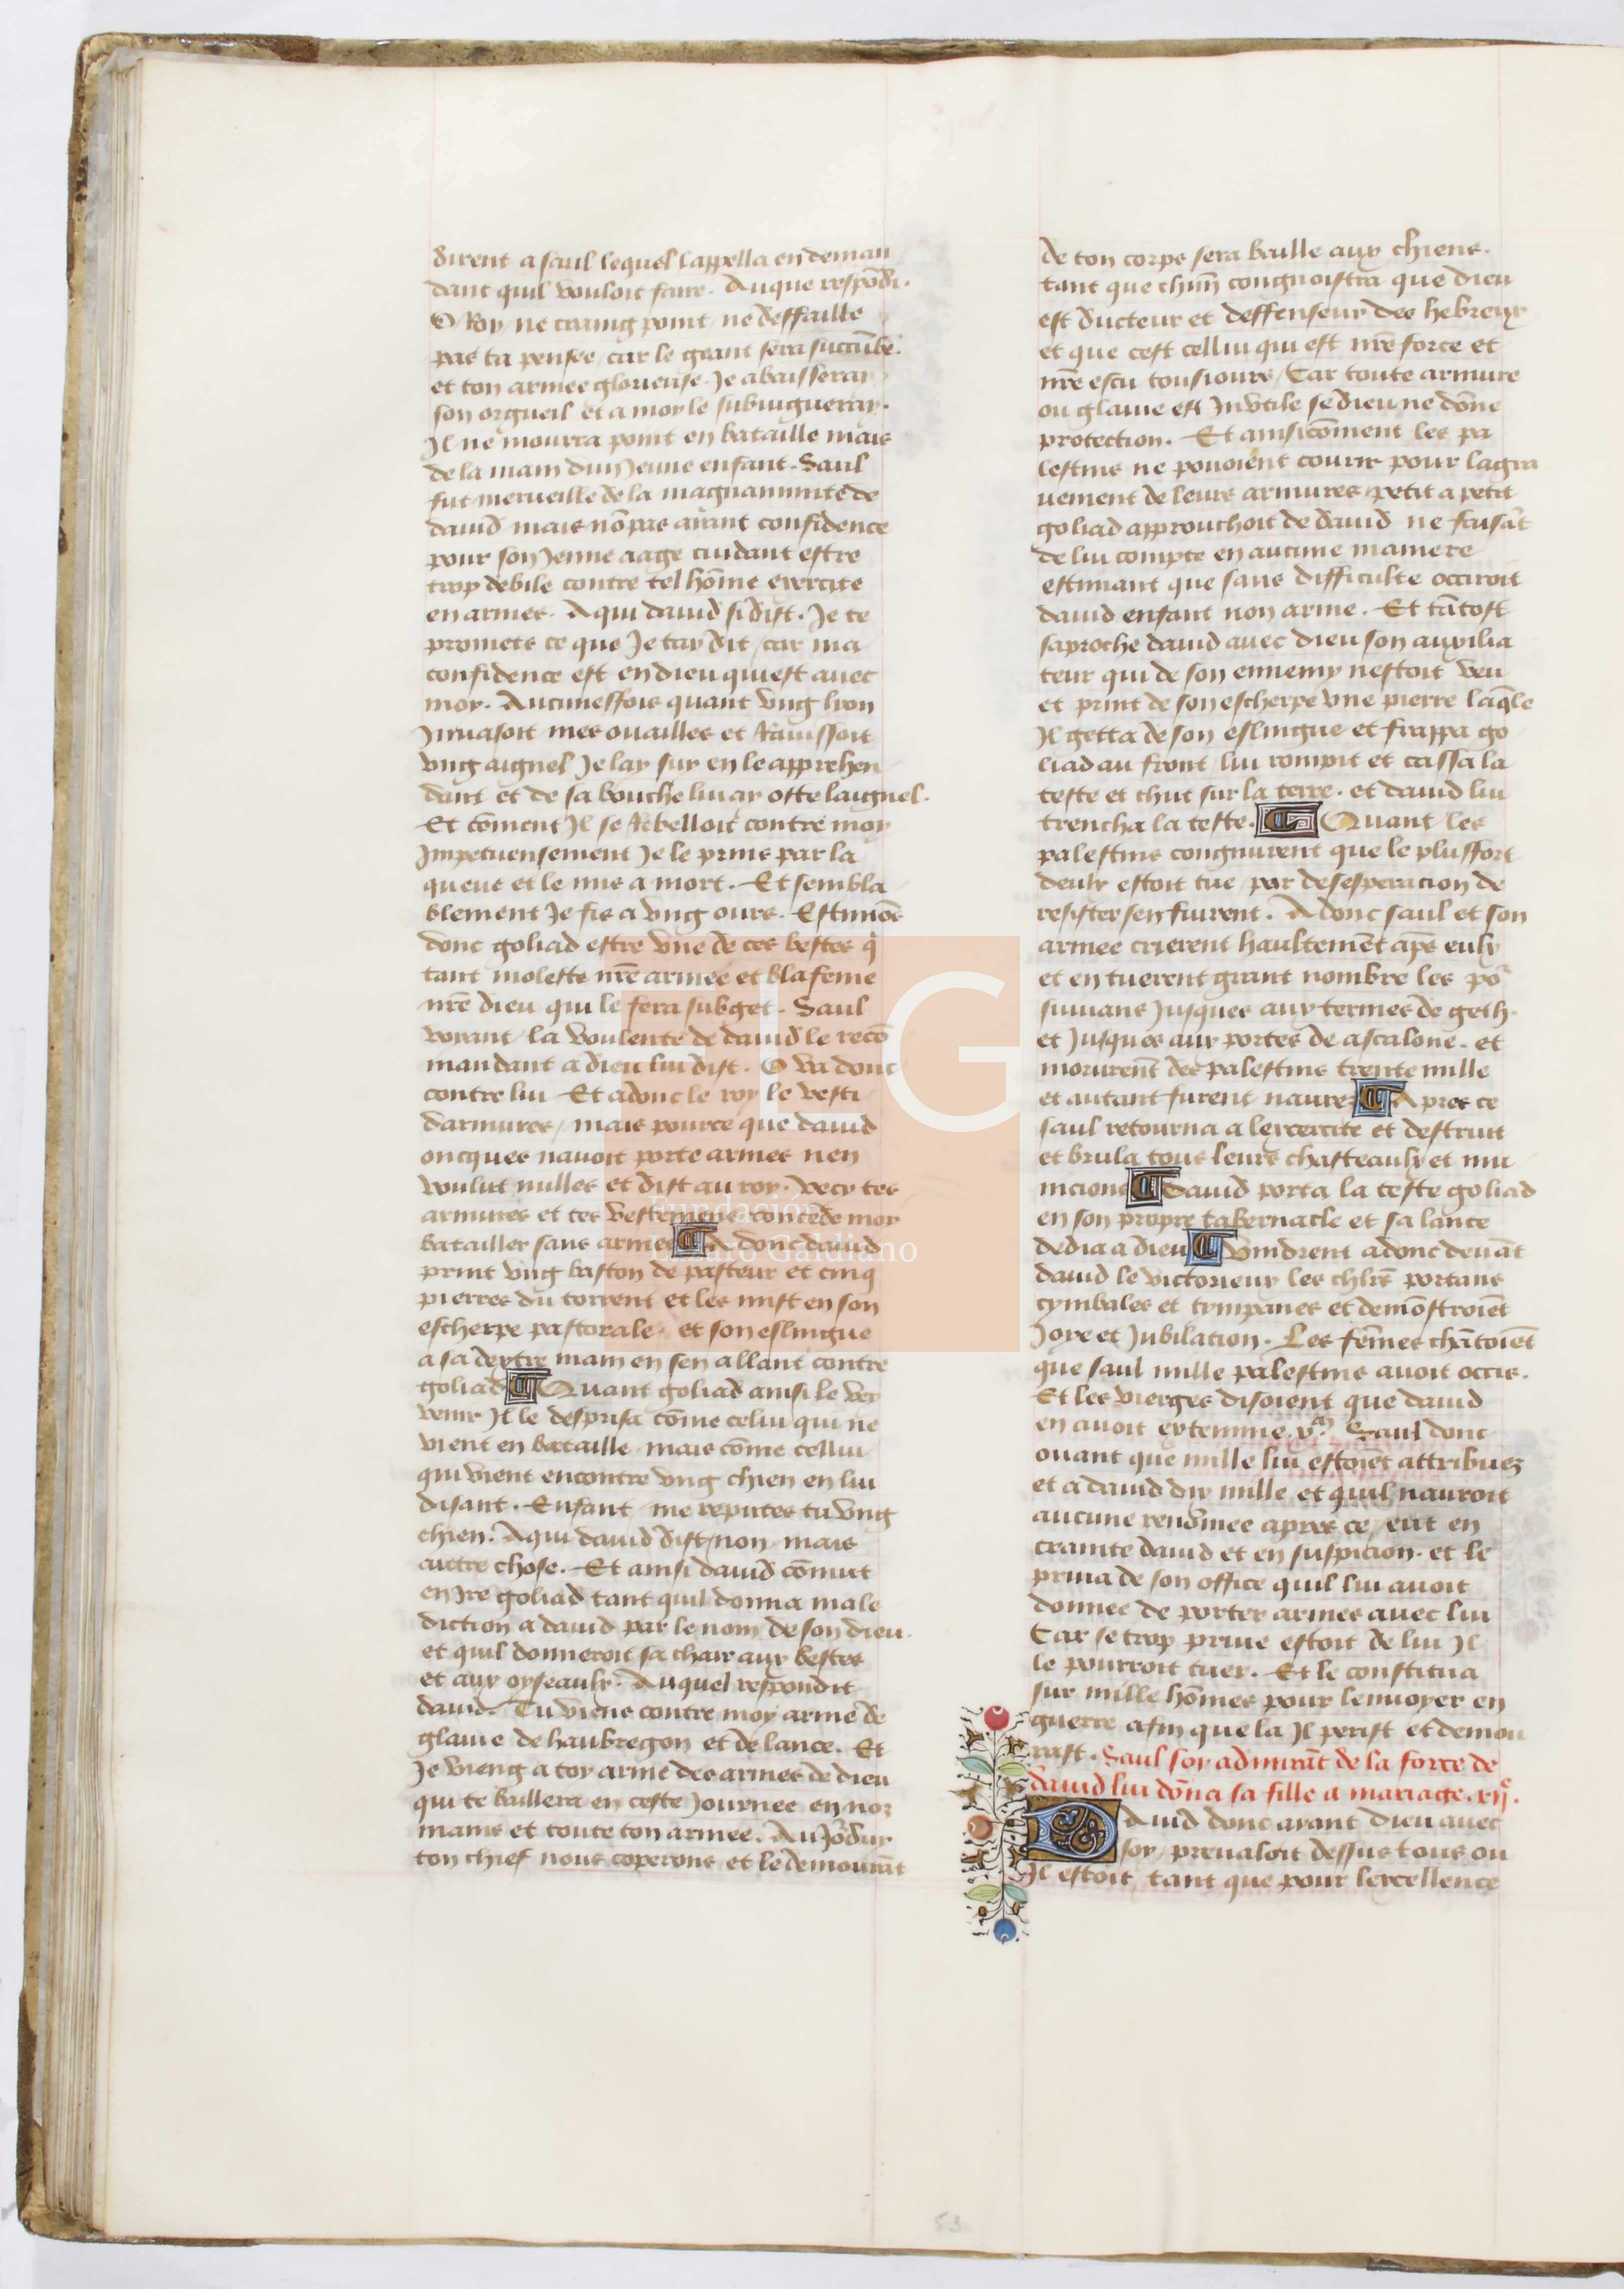 dirent a saul lequel lappella en deman
dant quil vouloit faire. Auque respōdi.
O Roy ne craing point ne deffaille
pas ta pensee, car le geant sera succūbe.
et ton armee glorieuse. Je abaisseray
son orgueil et a moy le subiugueray.
Il ne mourra point en bataille mais
de la main dun Jeune enfant. Saul
fut merueille de la magnanimite de
dauid mais nō pas aiant confidence
pour son Jenne aage cuidant estre
trop debile contre tel hōme exercite
en armes. A qui dauid si dist. Je te
promets ce que Je tay dit, car ma
confidence est en dieu qui est auec
moy. Aucuneffois quant vng lyon
Jnuasoit mes ouailles et Rauissoit
vng aignel Je lay suy en le apprehen
dant et de sa bouche luy ay oste laignel.
Et cōment Il se Rebelloit contre moy
Impetueusement Je le prins par la
queue et le mis a mort. Et sembla
blement Je fis a vng ours. Estimōs
donc goliad estre vne de ces bestes q̄
tant moleste nr̄e armee et blafeme
nr̄e dieu qui le fera subget. Saul
voiant la voulente de dauid le recō
mandant a dieu lui dist. O va donc
contre lui Et adonc le roy le vesti
darmures, mais pource que dauid
oncques nauoit porte armes nen
voulut nulles et dist au roy. Vecy tes
armures et tes vestemens concede moy
batailler sans armes A donc dauid
print vng baston de pasteur et cinq
pierres du torrent et les mist en son
escherpe pastorale. et son eslingue
a sa dextre main en sen allant contre
goliad Quant goliad ainsi le vey
venir Il le desprisa cōme celui qui ne
vient en bataille mais cōme cellui
qui vient encontre vng chien en lui
disant. Enfant me reputes tu vng
chien. A qui dauid dist, non mais
autre chose. Et ainsi dauid cōmut
en Ire goliad tant quil donna male
diction a dauid par le nom de son dieu.
et quil donneroit sa chair aux bestes
et aux oyseaulx. Auquel respondit
dauid. Tu viens contre moy arme de
glaiue de haubregon et de lance. Et
Je vieng a toy arme des armes de dieu
qui te baillera en ceste Journee en noz
mains et toute ton armee. Au Jōdui
ton chief nous coperons et le demourāt
de ton corps sera baille aux chiens.
tant que chūn congnoistra que dieu
est ducteur et deffenseur des hebreux
et que cest cellui qui est nr̄e force et
nr̄e escu tousiours, Car toute armure
ou glaiue est Inutile se dieu ne dōne
protection. Et ainsi cōment les pa
lestins ne pouoient courir pour lagra
uement de leurs armures petit a petit
goliad approuchoit de dauid ne faisāt
de lui compte en aucune maniere
estimant que sans difficulte occiroit
dauid enfant non arme. Et tātost
saproche dauid auec dieu son auxilia
teur qui de son ennemy nestoit veu
et print de son escherpe vne pierre laq̄le
Il getta de son eslingue et frappa go
liad au front lui rompit et cassa la
teste et chut sur la terre. et dauid lui
trencha la teste. Quant les
palestins congnurent que le plus fort
deulx estoit tue, par desesperacion de
resister sen fuirent. A donc saul et son
armee crierent haultemēt ap̄s eulx
et en tuerent grant nombre les po
suiuans Jusques aux termes de geth.
et Jusques aux portes de ascalone. et
morurent des palestins trente mille
et autant furent naurez A pres ce
saul retourna a lexercite et destruit
et brula tous leurs chasteaulx et mu
nicions Dauid porta la teste goliad
en son propre tabernacle et sa lance
dedia a dieu Vindrent adonc deuāt
dauid le victorieux les chlr̄s portans
cymbales et tympanes et demōstroiēt
Joye et Jubilation. Les fēmes chātoiēt
que saul mille palestins auoit occis.
Et les vierges disoient que dauid
en auoit extermine .x.m Saul donc
oyant que mille lui estoiēt attribuez
et a dauid dix mille et quil nauroit
aucune renōmee apres ce, eut en
crainte dauid et en suspicion. et le
priua de son office quil lui auoit
donnee de porter armes auec lui
Car se trop priue estoit de lui Il
le pourroit tuer. Et le constitua
sur mille hōmes pour lenuoyer en
guerre afin que la Il perist et demou
rast. Saul soy admirāt de la force de
dauid lui dōna sa fille a mariage. xij.e
Dauid donc aiant dieu auec
soy, preualoit dessus tous ou
Il estoit, tant que pour lexcellence
53
FLG
Fundación
Lázaro Galdiano